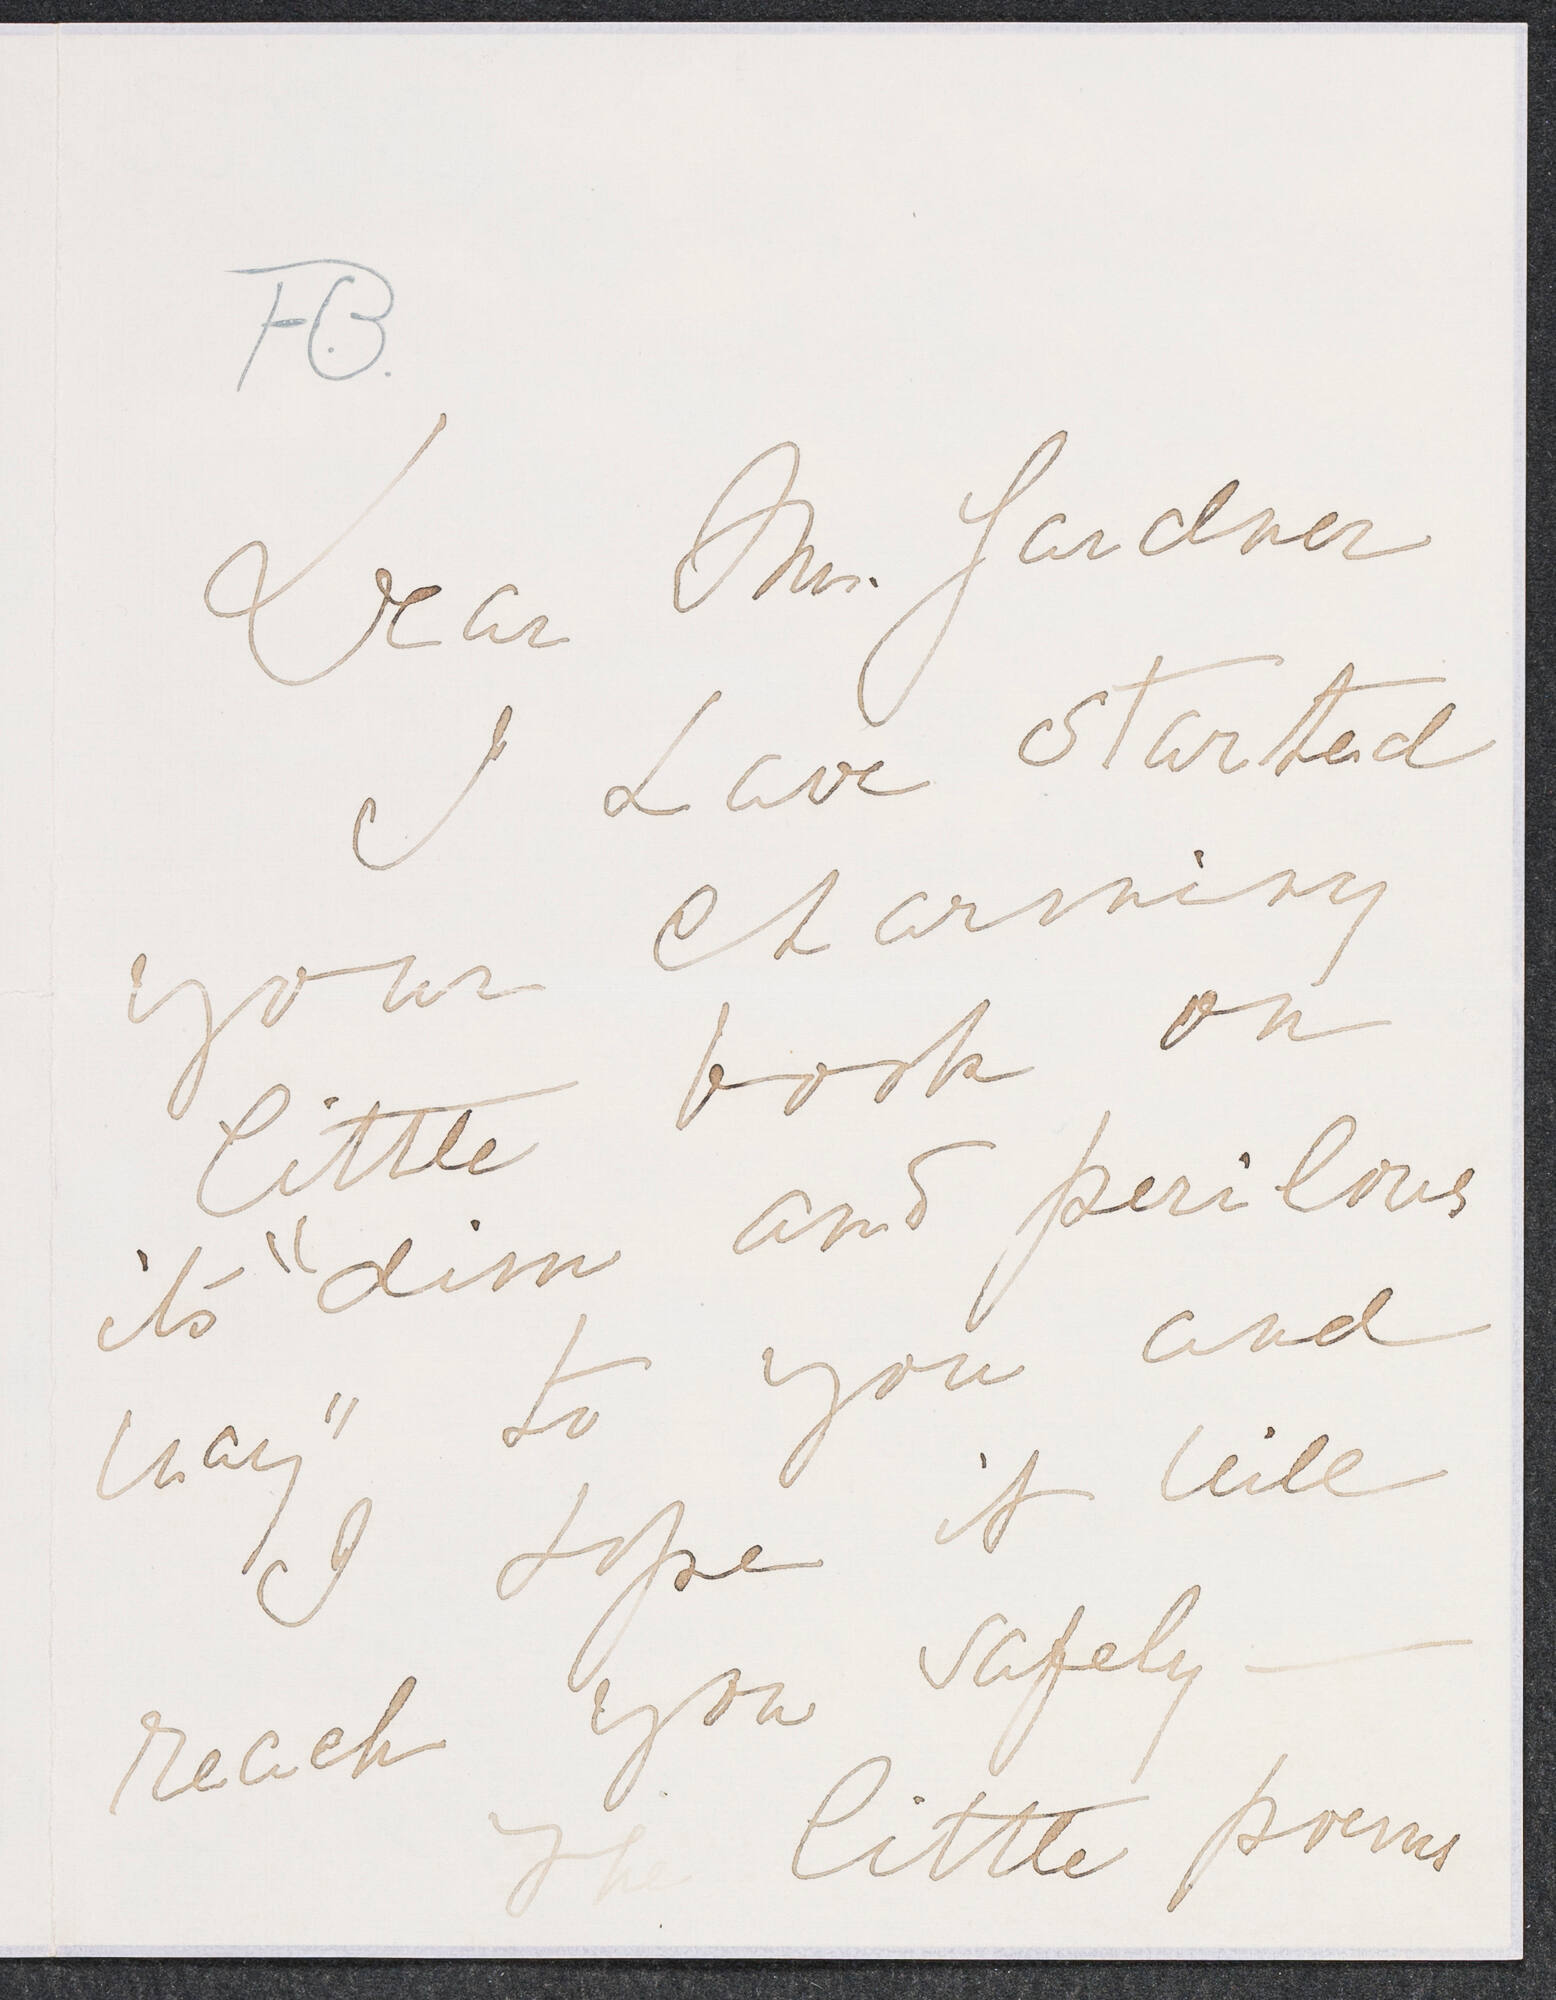 FB.
Dear Mrs. Gardner
I have started
your charming
little book on
its "dim and perilous
way" to you and
I hope it will
reach you safely —
The little poems